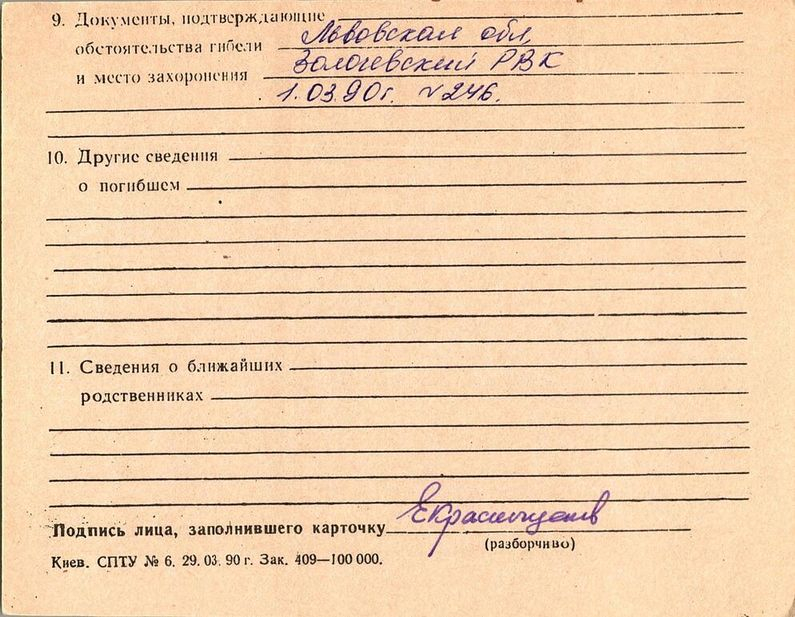 9. Документы, подтверждающие
обстоятельства гибели Львовская обл,
и место захоронения Золочевский РВК
1.03.90г. №246.
10. Другие сведения
о погибшем
11. Сведения о ближайших
родственниках
Подпись лица, заполнившего карточку
(разборчиво)
Киев. СПТУ № 6. 29. 03. 90 г. Зак. 409—100 000.